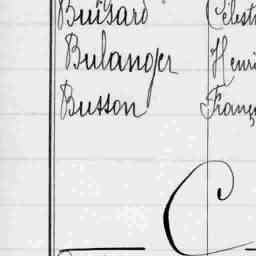 Buisard Célest
Bulanger Henri
Busson Franç
C